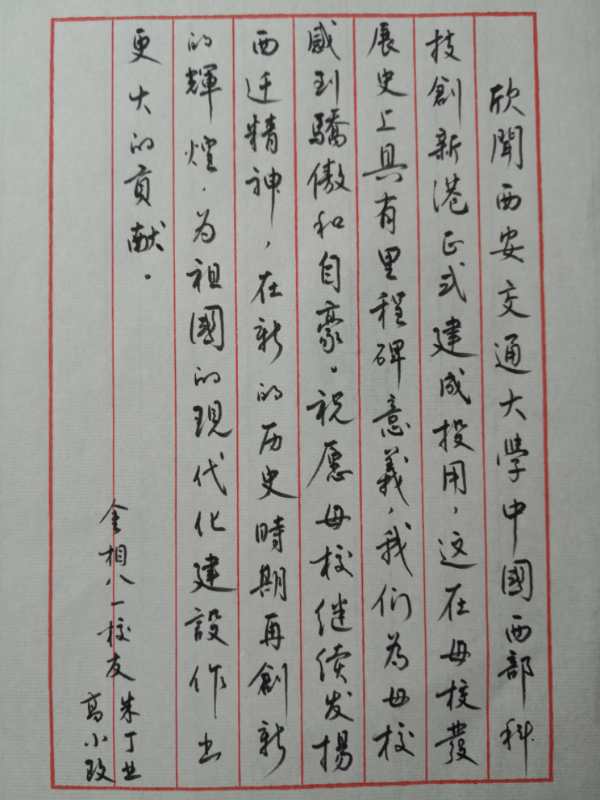 欣聞西安交通大学中國西部科
技創新港正式建成投用，这在母校發
展史上具有里程碑意義，我们为母校
感到驕傲和自豪。祝愿母校继续发揚
西迁精神，在新的历史時期再創新
的輝煌，为祖國的現代化建設作出
更大的貢献。
金相八一校友 朱丁业
高小玫